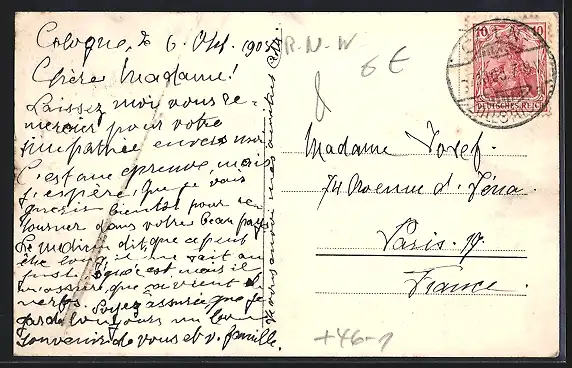 Cologne, le 6. Oct. 1905
Chère Madame!
Laissez moi vous re-
mercier pour votre
sympathie envers moi
C'est une épreuve, mais
j'espère, que je vais
guérir bientôt pour re
tourner dans votre beau pays
Le médecin dit, que ce peut
être long, il ne sait au
juste. que c'est mais il
m'assure, que ça vient des
nerfs. Soyez assurée que je
garde toujours un bon
souvenir de vous et v. famille.
R-N-W
6 €
CÖLN
10 10
DEUTSCHES REICH
Madame Josef.
74 Avenue d'Jéna.
Paris.
France.
+46-1